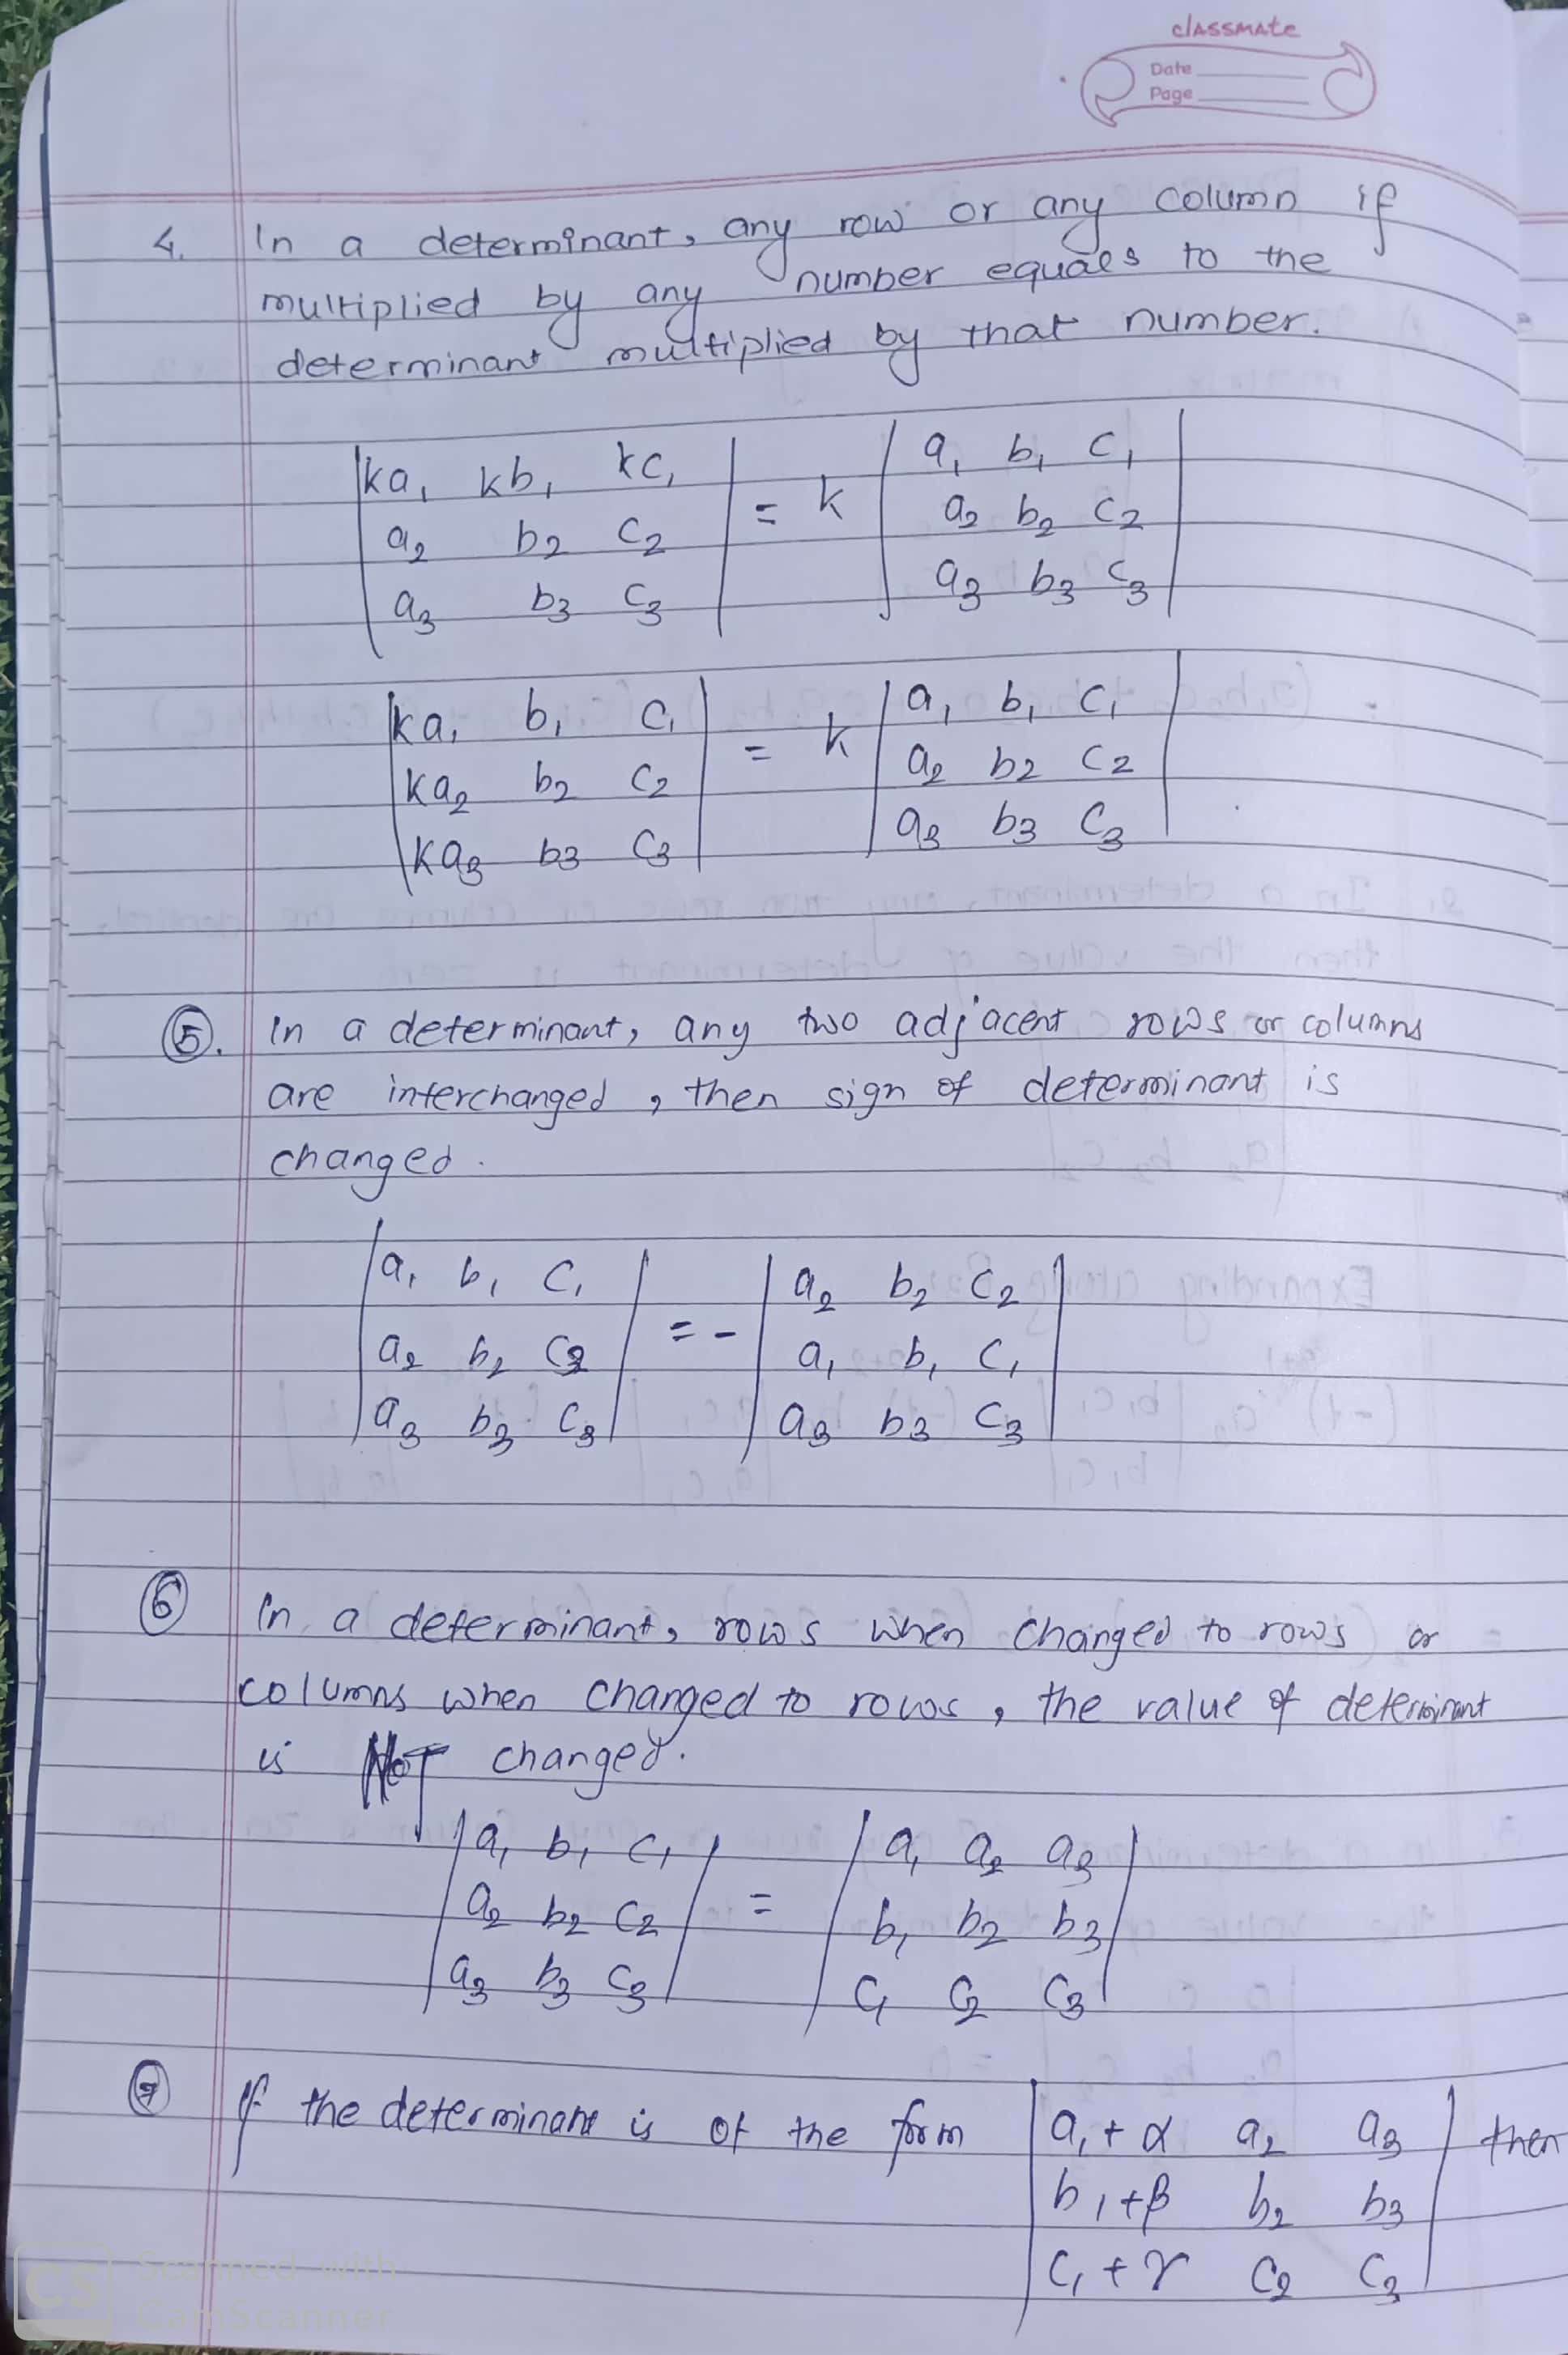 classmate
Date
Page
4. In a determinant, any row or any column if
multiplied by any number equals to the
determinant multiplied by that number.
|ka₁ kb₁ kc₁| = k |a₁ b₁ c₁|
|a₂ b₂ c₂| |a₂ b₂ c₂|
|a₃ b₃ c₃| |a₃ b₃ c₃|
|ka₁ b₁ c₁| = k |a₁ b₁ c₁|
|ka₂ b₂ c₂| |a₂ b₂ c₂|
|ka₃ b₃ c₃| |a₃ b₃ c₃|
⑤. In a determinant, any two adjacent rows or columns
are interchanged, then sign of determinant is
changed.
|a₁ b₁ c₁| = - |a₂ b₂ c₂|
|a₂ b₂ c₂| |a₁ b₁ c₁|
|a₃ b₃ c₃| |a₃ b₃ c₃|
⑥ In a determinant, rows when changed to rows or
columns when changed to rows, the value of determinant
is NOT changed.
|a₁ b₁ c₁| = |a₁ a₂ a₃|
|a₂ b₂ c₂| |b₁ b₂ b₃|
|a₃ b₃ c₃| |c₁ c₂ c₃|
⑦ If the determinant is of the form |a₁+α a₂ a₃| then
|b₁+β b₂ b₃|
|c₁+γ c₂ c₃|
CS Scanned with
CamScanner